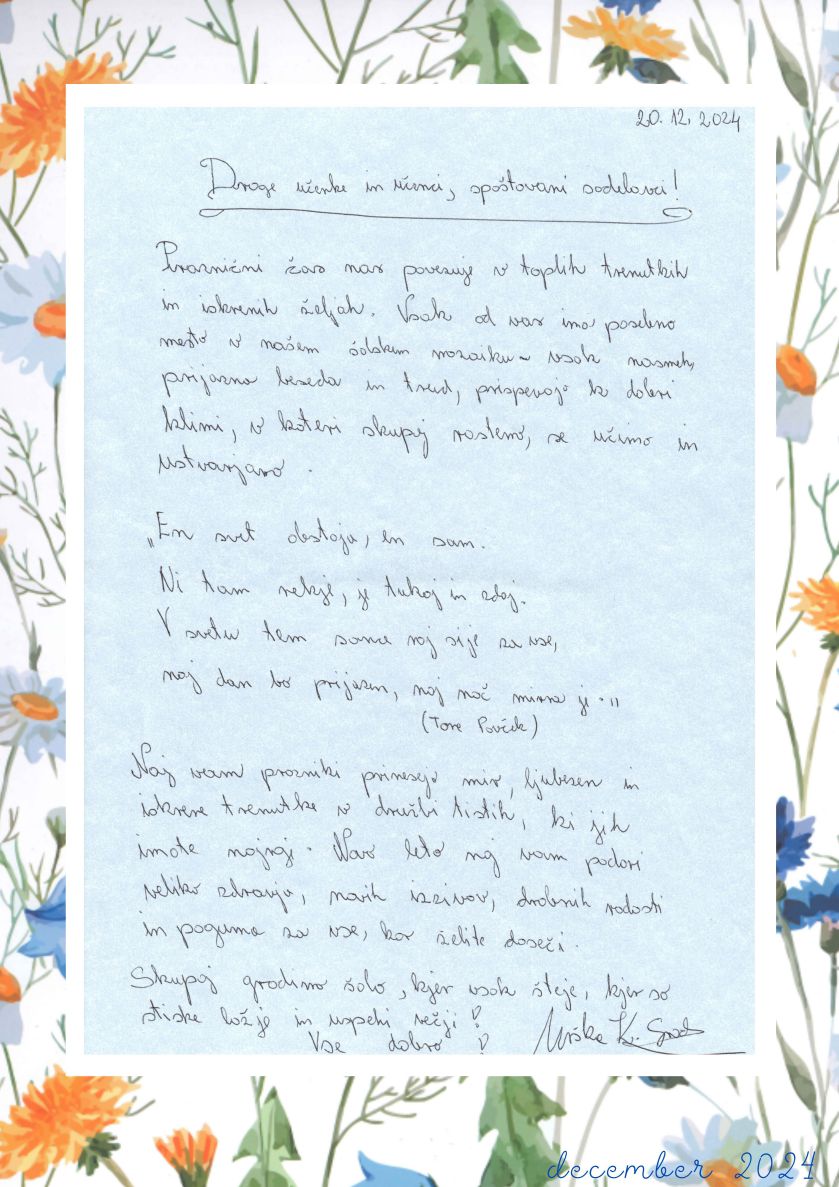 20. 12. 2024
Drage učenke in učenci, spoštovani sodelavci!
Praznični čas nas povezuje v toplih trenutkih
in iskrenih željah. Vsak od vas ima posebno
mesto v našem šolskem mozaiku - vsak nasmeh,
prijazna beseda in trud, prispevajo k dobri
klimi, v kateri skupaj rastemo, se učimo in
ustvarjamo.
„En svet obstaja, en sam.
Ni tam nekje, je tukaj in zdaj.
V svetu tem sonce naj sije za vse,
naj dan bo prijazen, naj noč mirna je."
(Tone Pavček)
Naj vam prazniki prinesejo mir, ljubezen in
iskrene trenutke v družbi tistih, ki jih
imate najraji. Novo leto naj vam podari
veliko zdravja, novih izzivov, drobnih radosti
in poguma za vse, kar želite doseči.
Skupaj gradimo šolo, kjer vsak šteje, kjer so
stiske lažje in uspehi večji!
Vse dobro!
Urška K.
december 2024